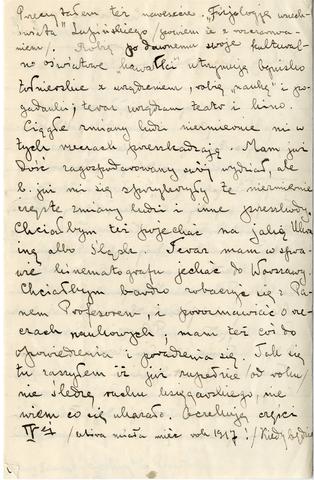 Przeczytałem też nareszcie „Frizologję wszech-
świata" Łuzińskiego /powiem że z rozczarowa-
niem/. Robię po dawnemu swoje kultural-
no oświatowe „kawałki" utrzymuję ognisko
żołnierskie z urządzeniem, robię „naukę" i po-
gadanki; teraz urządzam teatr i kino.
Ciągłe zmiany ludzi niezmiernie mi w
tych rzeczach przeszkadzają. Mam już
dość zagospodarowany swój wydział, ale
b. już mi się sprzykrzyły te niezmiernie
częste zmiany ludzi i inne przeszkody.
Chciałbym też pojechać na jakąś Ukra-
inę albo Śląsk. Teraz mam w spra-
wie kinematografu jechać do Warszawy.
Chciałbym bardzo zobaczyć się z Pa-
nem Profesorem, i porozmawiać o rze-
czach naukowych; mam też coś do
opowiedzenia i poradzenia się. Tak się
tu zaszyłem iż już zupełnie /od roku/
nie śledzę ruchu księgarskiego, nie
wiem co się ukazało. Oczekuję części
IV-ej /która miała mieć rok 1917!/ Kiedy będzie